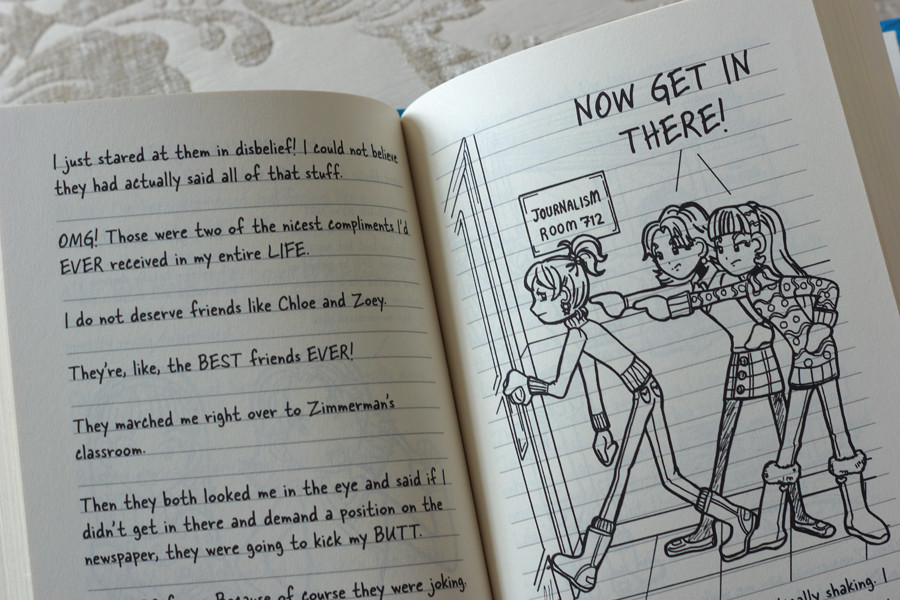 I just stared at them in disbelief! I could not believe
they had actually said all of that stuff.
OMG! Those were two of the nicest compliments I'd
EVER received in my entire LIFE.
I do not deserve friends like Chloe and Zoey.
They're, like, the BEST friends EVER!
They marched me right over to Zimmerman's
classroom.
Then they both looked me in the eye and said if I
didn't get in there and demand a position on the
newspaper, they were going to kick my BUTT.
Because of course they were joking.
NOW GET IN
THERE!
JOURNALISM
ROOM 712
shaking. I